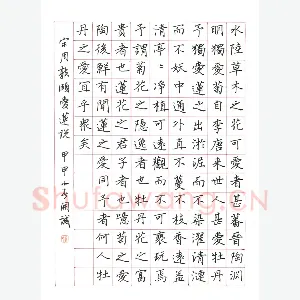 水陸草木之花可愛者甚蕃晉陶淵
明獨愛菊自李唐來世人甚愛牡丹
予獨愛蓮之出淤泥而不染濯清漣
而不妖中通外直不蔓不枝香遠益
清亭〻淨植可遠觀而不可褻玩焉
予謂菊花之隱逸者也牡丹花之富
貴者也蓮花之君子者也噫菊之愛
陶後鮮有聞蓮之愛同予者何人牡
丹之愛宜乎眾矣
宋周敦頤愛蓮說
Shufawang.cn